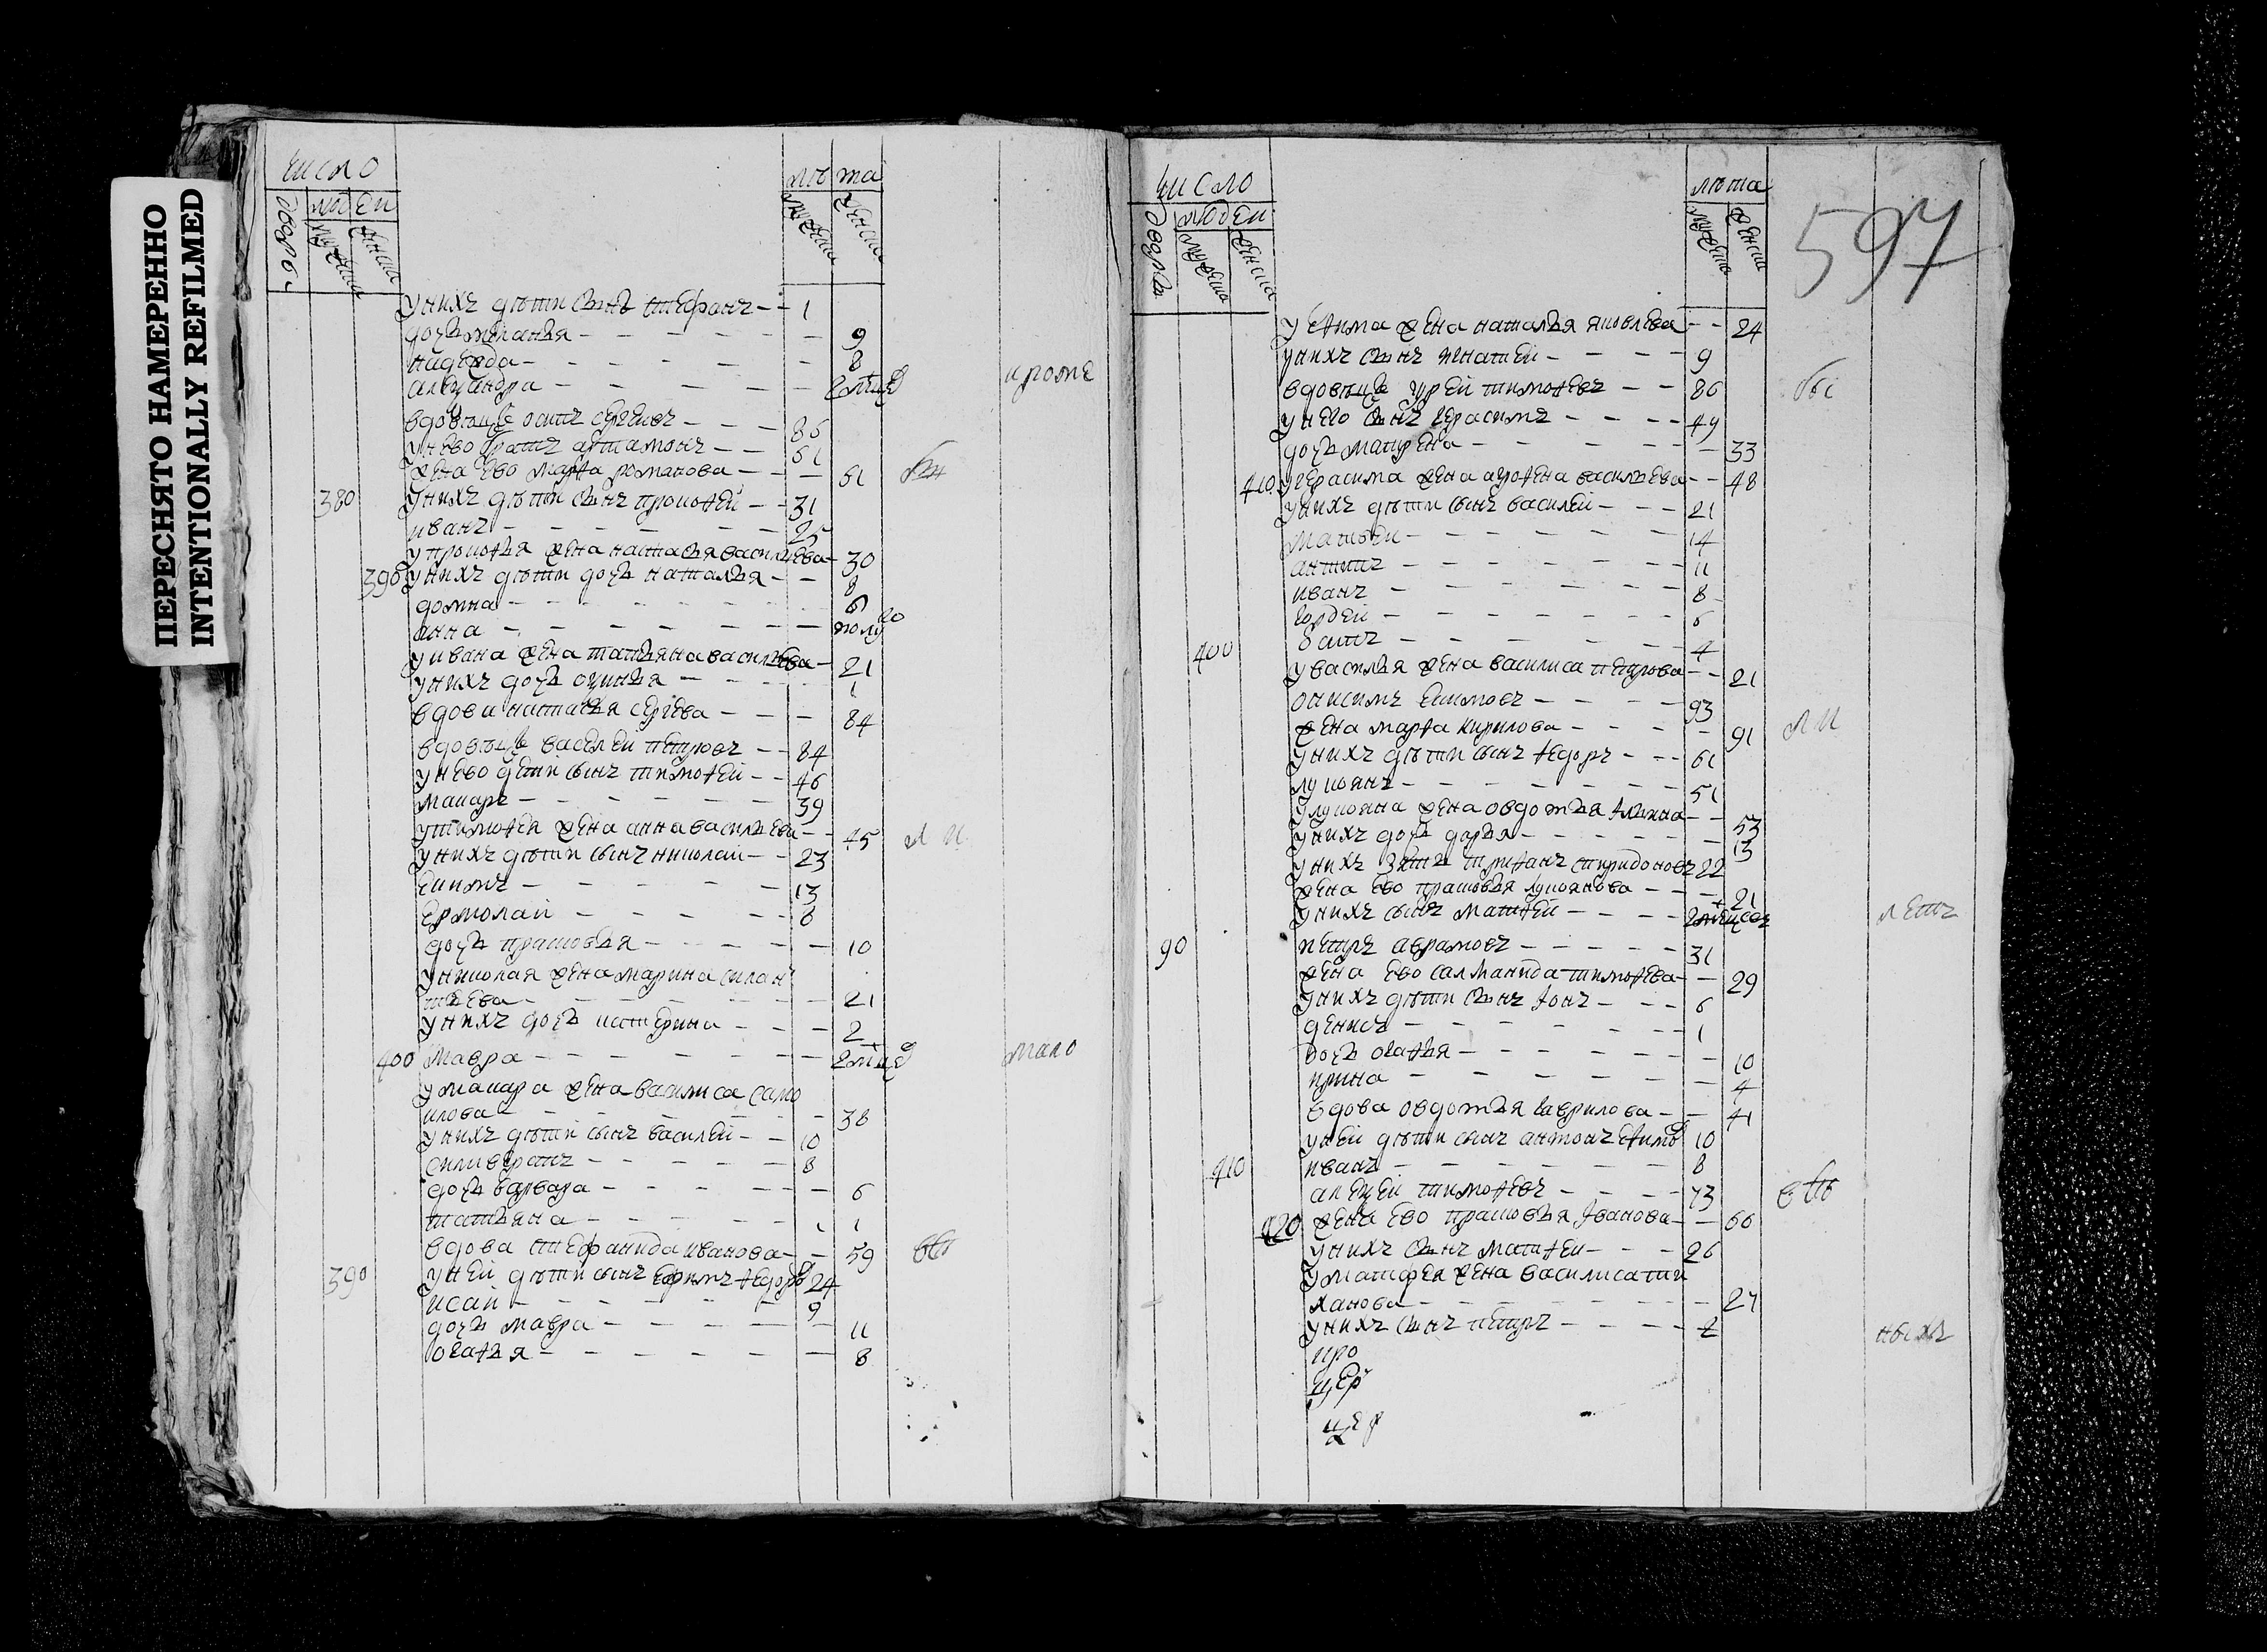 ПЕРЕСНЯТО НАМЕРЕННО
INTENTIONALLY REFILMED
число
лѣта
дворы
людеи
мужеска
женска
мужеска
женска
у нихъ дѣти сынъ стефанъ 1
дочь меланья 9
надежда 8
александра 2 мца
кроме
вдовецъ осипъ сергеевъ 86
у нево братъ артамонъ 61
жена ево марѳа романова 61
380 у нихъ дѣти сынъ прокоѳеи 31
иванъ 25
у прокоѳья жена настасья васильева 30
390 у нихъ дѣти дочь наталья 8
домна 6
анна полуго
у ивана жена татьяна васильева 21
у нихъ дочь ксинья 1
вдова наталья сергеева 84
вдовецъ василеи петровъ 84
у нево дети сынъ тимоѳеи 46
макаръ 39
у тимоѳея жена анна васильева 45
л и
у нихъ дѣти сынъ николаи 23
екимъ 13
ермолаи 8
дочь прасковья 10
у николая жена марина силан
тьева 21
у нихъ дочь катерина 2
400 мавра 2 мца
мало
у макара жена василиса само
илова 38
у нихъ дѣти сынъ василеи 10
силиверстъ 8
дочь варвара 6
татьяна 1
вдова стефанида иванова 59
390 у неи дѣти сынъ ефимъ ѳедоро 24
исаи 9
дочь мавра 11
огаѳья 8
число
лѣта
597
дворы
людеи
мужеска
женска
мужеска
женска
у еѳима жена наталья яковлева 24
у нихъ сынъ игнатеи 9
вдовецъ гуреи тимоѳевъ 86
у него сынъ герасимъ 49
дочь макрена 33
410 у герасима жена аѳроѳена васильева 48
у нихъ дѣти сынъ василеи 21
матвеи 14
антипъ 11
иванъ 8
гордеи 6
400 осипъ 4
у василья жена василиса петрова 21
онисимъ екимовъ 93
жена марѳа кирилова 91
л и
у нихъ дѣти сынъ ѳедоръ 61
лукьянъ 51
у лукояна жена овдотья 53
у нихъ дочь дарья 13
у нихъ зять триѳанъ спиридоновъ 22
жена ево прасковья лукоянова 21
у нихъ сынъ матѳеи 2 месеца
летъ
90 петръ аврамовъ 31
жена ево салманида тимоѳева 29
у нихъ дѣти сынъ іонъ 6
денисъ 1
дочь огаѳья 10
ирина 4
вдова овдотья гаврилова 41
у неи дѣти сынъ антонъ еѳимо 10
410 иванъ 8
алексеи тимоѳевъ 73
420 жена ево прасковья іванова 66
у нихъ сынъ матѳеи 26
у матѳея жена василиса сти
ханова 27
у нихъ сынъ петръ 2
ныхъ
про
цер
цер